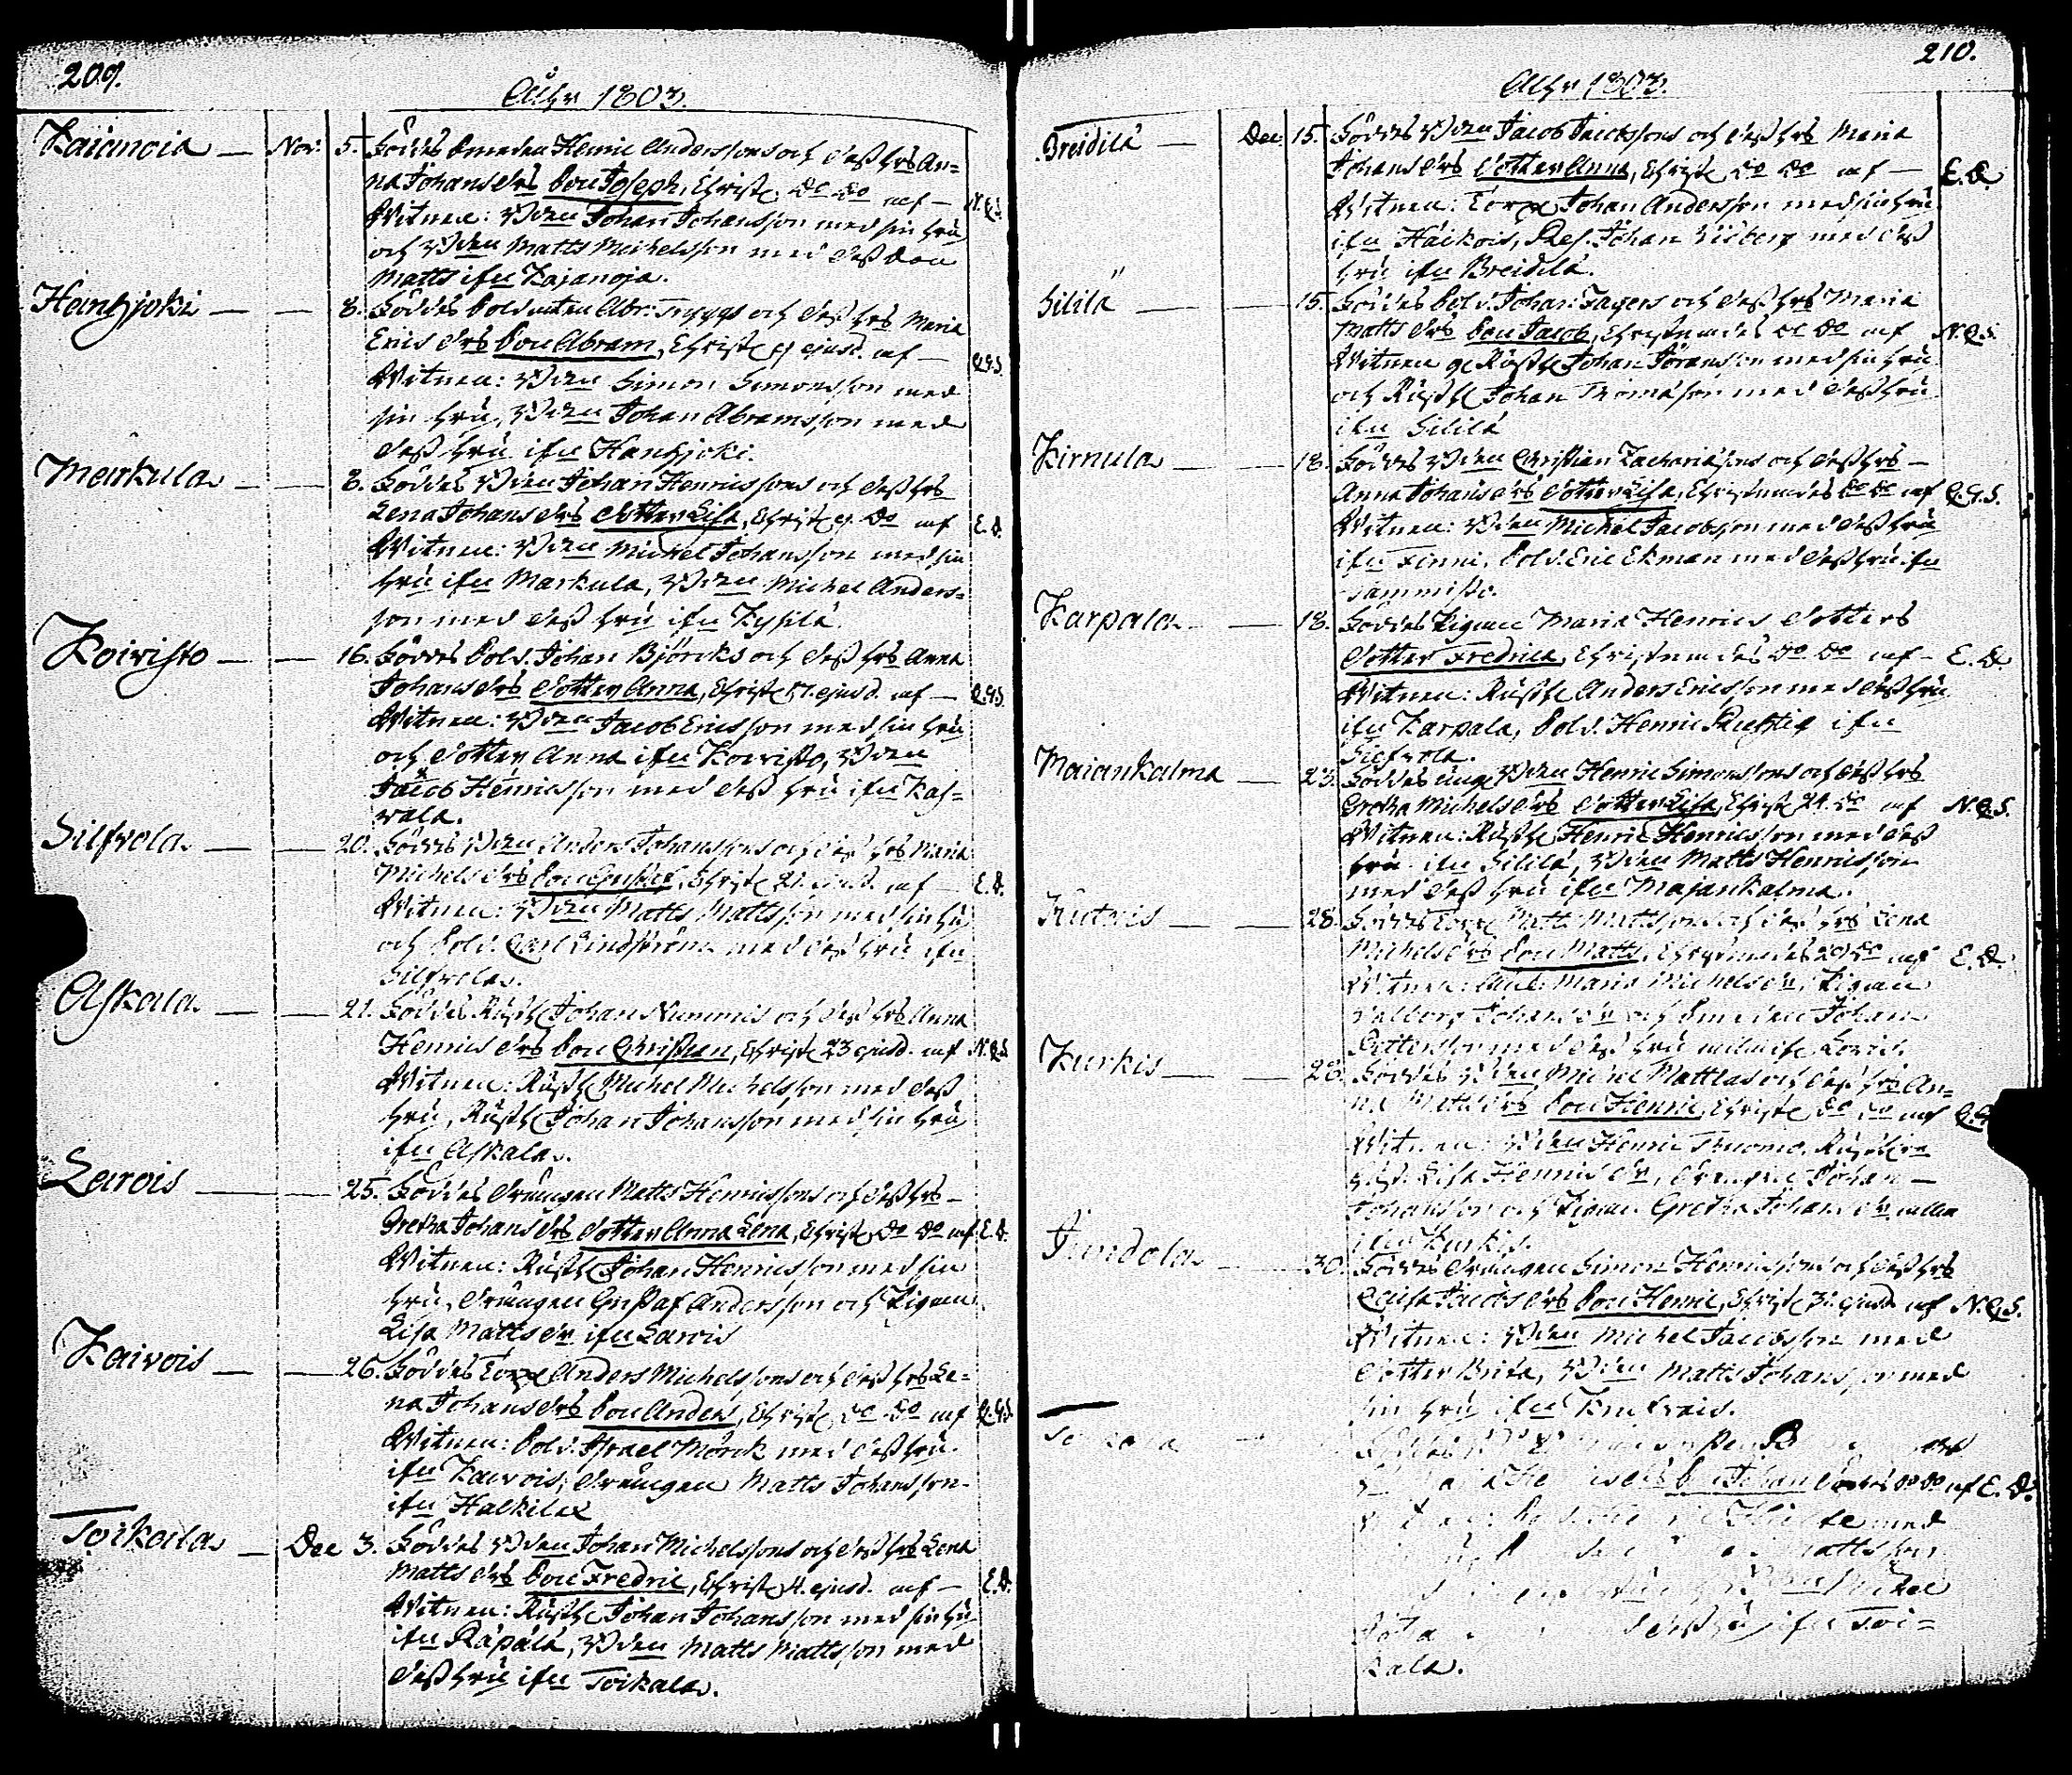 209.
Åhr 1803.
Kaianoia — Nov. 5. Föddes Smeden Henric Anderssons och dess hrs An=
na Johans drs Son Joseph, Christ. do do af — N.G.S.
Witnen: Bden Johan Johansson med sin hru
och Bden Matts Michelsson med dess Son
Matts ifrn Kajanoja.
Hanhjoki — — 8. Föddes Soldaten Abr. Tryggs och dess hrs Maria
Erics drs Son Abram, Christ. 9 ejusd. af — G.G.S.
Witnen: Bden Simon Simonsson med
sin hru, Bden Johan Abramsson med
dess hru ifrn Hanhjoki.
Markula — — 8. Föddes Bden Johan Henricssons och dess hrs
Lena Johans drs dotter Lisa, Christ. 9. do af E.D.
Witnen: Bden Michel Johansson med sin
hru ifrn Markula, Bden Michel Anders=
son med dess hru ifrn Kysilä.
Koivisto — — 16. Föddes Sold. Johan Björcks och dess hrs Anna
Johans drs dotter Anna, Christ. 17. ejusd. af — G.G.S.
Witnen: Bden Jacob Ericsson med sin hru
och dotter Anna ifrn Koivisto, Bden
Jacob Henricsson med dess hru ifrn Kas=
vala.
Silfvola — — 20. Föddes Bden Anders Johanssons och dess hrs Maria
Michels drs Son Gustaf, Christ. 21. ejusd. af — E.D.
Witnen: Bden Matts Mattsson med sin hru
och Sold. Carl Lindström med dess hru ifrn
Silfvola.
Askala — — 21. Föddes Rusth. Johan Nummis och dess hrs Anna
Henrics drs Son Christian, Christ. 23 ejusd. af N.G.S.
Witnen: Rusth. Michel Michelsson med dess
hru, Rusth. Johan Johansson med sin hru
ifrn Askala.
Larois — — 25. Föddes drängen Matts Henricssons och dess hrs —
Gretha Johans drs dotter Anna Lena, Christ. do do af E.D.
Witnen: Rusth. Johan Henricsson med sin
hru, drängen Gustaf Andersson och Pigan
Lisa Matts dr ifrn Larois
Kairois — — 26. Föddes Torp. Anders Michelssons och dess hrs Le=
na Johans drs Son Anders, Christ. do do af G.G.S.
Witnen: Sold. Israel Mörck med dess hru
ifrn Kairois, drängen Matts Johansson
ifrn Halkila
Toikala — Dec 3. Föddes Bden Johan Michelssons och dess hrs Lena
Matts drs Son Fredric, Christ. 4. ejusd. af — E.D.
Witnen: Rusth. Johan Johansson med sin hru
ifrn Räpälä, Bden Matts Mattsson med
dess hru ifrn Toikala.
210.
Åhr 1803.
Breidilä — Dec. 15. Föddes Bden Jacob Jacobssons och dess hrs Maria
Johans drs dotter Anna, Christ. do do af — E.D.
Witnen: Torp. Johan Andersson med sin hru
ifrn Haikois, Johan med dess
hru ifrn Breidilä.
Sililä — — 15. Föddes Sold. Johan Jagers och dess hrs Maria
Matts drs Son Jacob, Christnades do do af N.G.S.
Witnen Rusth. Johan med sin hru
och Rusth. Johan Thomasson med dess hru
ifrn Sililä
Kirnula — — 18. Föddes Bden Christian Zachariæsons och dess hrs —
Anna Johans drs dotter Lisa, Christnades do do af G.G.S.
Witnen: Bden Michel Jacobsson med dess hru
ifrn Finni, Sold. Eric Ekman med dess hru ifrn
Tammisto.
Karpala — — 18. Föddes Pigan Maria Henrics dotters
dotter Fredrica, Christnades do do af — E.D.
Witnen: Rusth. Anders Ericsson med dess hru
ifrn Karpala, Sold. Henric Rusktig ifrn
Silfvola.
Maiankalma — 23. Föddes unge Bden Henric Simonssons och dess hrs
Gretha Michels drs dotter Lisa, Christ. 24. do af N.G.S.
Witnen: Rusth. Henric Henricsson med dess
hru ifrn Sililä, Bden Matts Henricsson
med dess hru ifrn Majankalma.
— — 28. Föddes Torp. Matts Mattssons och dess hrs Lena
Michels drs Son Matts, Christnades 29 do af E.D.
Witnen: Maria Michels dr, Pigan
Valborg Johans dr och Smeden Johan
Pettersson med dess hru
Kurkis — — 28. Föddes Bden Michel Mattlas och dess hrs An=
na Matts drs Son Henric, Christ. do do af
Witnen: Bden Henric Thuomo,
Lisa Henrics dr, drängen Johan —
Johansson och Pigan Gretha Johans dr
ifrn Kurkis.
Jundola — 30. Föddes drängen Simon Henricssons och dess hrs
Caisa Jacobs drs Son Henric, Christ. 31. ejusd. af N.G.S.
Witnen: Bden Michel Jacobsson med
dotter Brita, Bden Matts Johansson med
sin hru ifrn
Son Johan do do af E.D.
med
Mattsson
Michel
dess hru ifrn Toi=
kala.